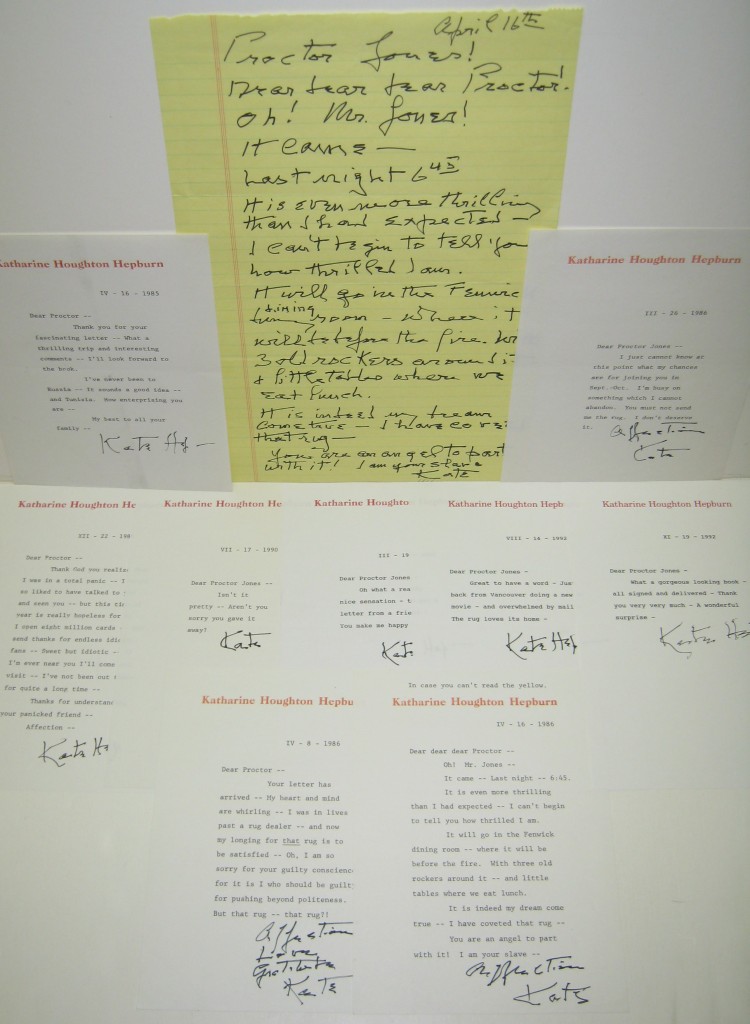 April 16th
Proctor Jones!
Dear dear dear Proctor!
Oh! Mr. Jones!
It came —
Last night 6 45
It is even more thrilling
than I had expected —
I can't begin to tell you
how thrilled I am.
It will go in the Fenwic
dining
room — where it
will be before the fire. W
3 old rockers around it
& little tables where we
eat lunch.
It is indeed my dream
come true — I have cove
that rug —
You are an angel to part
with it! I am your slave
Kate
Katharine Houghton Hepburn
IV - 16 - 1985
Dear Proctor --
Thank you for your
fascinating letter -- What a
thrilling trip and interesting
comments -- I'll look forward to
the book.
I've never been to
Russia -- It sounds a good idea --
and Tunisia. How enterprising you
are --
My best to all your
family --
Kate Hep —
Katharine Houghton Hepburn
III - 26 - 1986
Dear Proctor Jones --
I just cannot know at
this point what my chances
are for joining you in
Sept.-Oct. I'm busy on
something which I cannot
abandon. You must not send
me the rug. I don't deserve
it.
Affection
Kate
Katharine Houghton He
XII - 22 - 198
Dear Proctor --
Thank God you realiz
I was in a total panic -- I
so liked to have talked to
and seen you -- but this ti
year is really hopeless for
I open eight million cards
send thanks for endless idi
fans -- Sweet but idiotic --
I'm ever near you I'll come
visit -- I've not been out
for quite a long time --
Thanks for understand
your panicked friend --
Affection --
Kate He
Katharine Houghton He
VII - 17 - 1990
Dear Proctor Jones --
Isn't it
pretty -- Aren't you
sorry you gave it
away?
Kate
Katharine Houghto
III - 19
Dear Proctor Jones
Oh what a rea
nice sensation - t
letter from a frie
You make me happy
Kate
Katharine Houghton Hepb
VIII - 14 - 1992
Dear Proctor Jones -
Great to have a word - Jus
back from Vancouver doing a new
movie - and overwhelmed by mail
The rug loves its home -
Kate Hep
Katharine Houghton Hepburn
XI - 19 - 1992
Dear Proctor Jones -
What a gorgeous looking book -
all signed and delivered - Thank
you very very much - A wonderful
surprise -
Kate He
In case you can't read the yellow.
Katharine Houghton Hepbu
IV - 8 - 1986
Dear Proctor --
Your letter has
arrived -- My heart and mind
are whirling -- I was in lives
past a rug dealer -- and now
my longing for that rug is to
be satisfied -- Oh, I am so
sorry for your guilty conscienc
for it is I who should be guilt
for pushing beyond politeness.
But that rug -- that rug!!
Affection
Love
Gratitude
Kate
Katharine Houghton Hepburn
IV - 16 - 1986
Dear dear dear Proctor --
Oh! Mr. Jones --
It came -- Last night -- 6:45.
It is even more thrilling
than I had expected -- I can't begin
to tell you how thrilled I am.
It will go in the Fenwick
dining room -- where it will be
before the fire. With three old
rockers around it -- and little
tables where we eat lunch.
It is indeed my dream come
true -- I have coveted that rug --
You are an angel to part
with it! I am your slave --
Affection
Kate